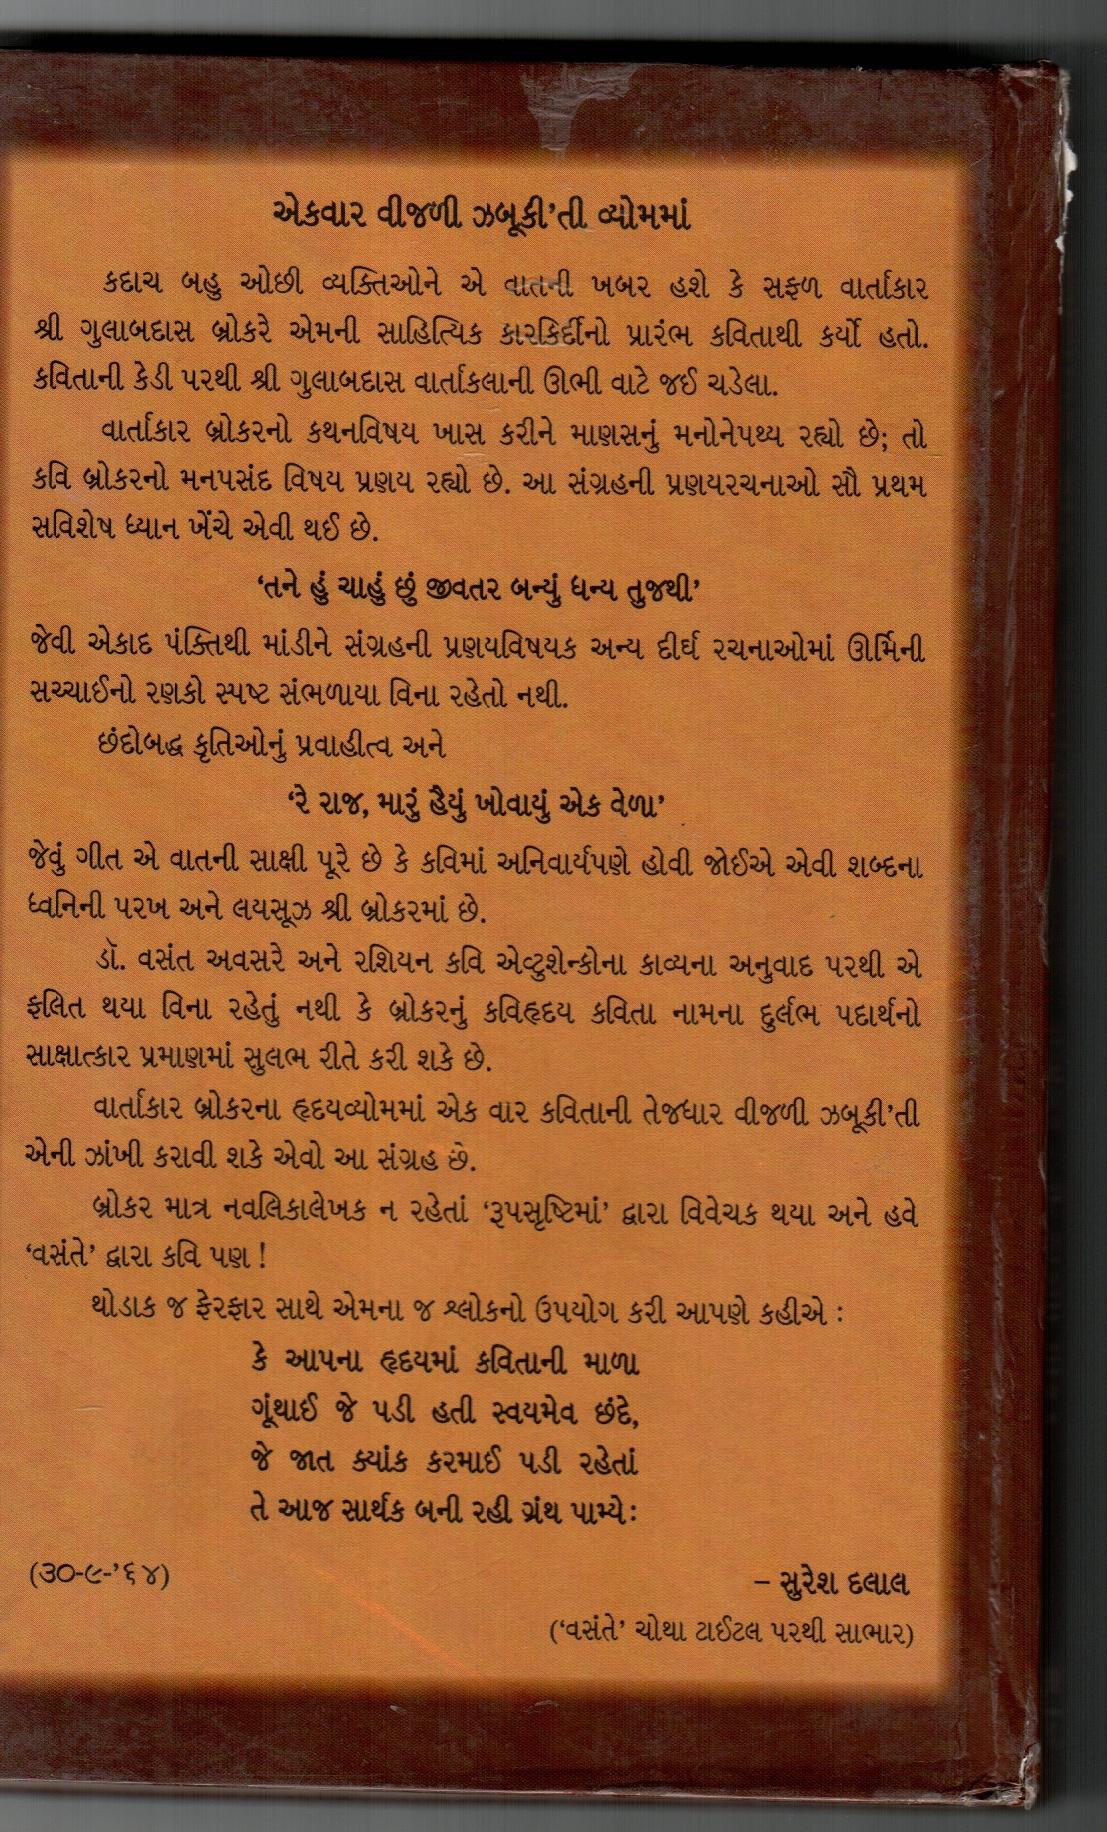 એકવાર વીજળી ઝબૂકી’તી વ્યોમમાં
કદાચ બહુ ઓછી વ્યક્તિઓને એ વાતની ખબર હશે કે સફળ વાર્તાકાર
શ્રી ગુલાબદાસ બ્રોકરે એમની સાહિત્યિક કારકિર્દીનો પ્રારંભ કવિતાથી કર્યો હતો.
કવિતાની કેડી પરથી શ્રી ગુલાબદાસ વાર્તાકલાની ઊભી વાટે જઈ ચડેલા.
વાર્તાકાર બ્રોકરનો કથનવિષય ખાસ કરીને માણસનું મનોનેપથ્ય રહ્યો છે; તો
કવિ બ્રોકરનો મનપસંદ વિષય પ્રણય રહ્યો છે. આ સંગ્રહની પ્રણયરચનાઓ સૌ પ્રથમ
સવિશેષ ધ્યાન ખેંચે એવી થઈ છે.
‘તને હું ચાહું છું જીવતર બન્યું ધન્ય તુજથી’
જેવી એકાદ પંક્તિથી માંડીને સંગ્રહની પ્રણયવિષયક અન્ય દીર્ઘ રચનાઓમાં ઊર્મિની
સચ્ચાઈનો રણકો સ્પષ્ટ સંભળાયા વિના રહેતો નથી.
છંદોબદ્ધ કૃતિઓનું પ્રવાહીત્વ અને
‘રે રાજ, મારું હૈયું ખોવાયું એક વેળા’
જેવું ગીત એ વાતની સાક્ષી પૂરે છે કે કવિમાં અનિવાર્યપણે હોવી જોઈએ એવી શબ્દના
ધ્વનિની પરખ અને લયસૂઝ શ્રી બ્રોકરમાં છે.
ડૉ. વસંત અવસરે અને રશિયન કવિ એવ્ટુશેન્કોના કાવ્યના અનુવાદ પરથી એ
ફલિત થયા વિના રહેતું નથી કે બ્રોકરનું કવિહૃદય કવિતા નામના દુર્લભ પદાર્થનો
સાક્ષાત્કાર પ્રમાણમાં સુલભ રીતે કરી શકે છે.
વાર્તાકાર બ્રોકરના હૃદયવ્યોમમાં એક વાર કવિતાની તેજધાર વીજળી ઝબૂકી’તી
એની ઝાંખી કરાવી શકે એવો આ સંગ્રહ છે.
બ્રોકર માત્ર નવલિકાલેખક ન રહેતાં ‘રૂપસૃષ્ટિમાં’ દ્વારા વિવેચક થયા અને હવે
‘વસંતે’ દ્વારા કવિ પણ !
થોડાક જ ફેરફાર સાથે એમના જ શ્લોકનો ઉપયોગ કરી આપણે કહીએ :
કે આપના હૃદયમાં કવિતાની માળા
ગૂંથાઈ જે પડી હતી સ્વયમેવ છંદે,
જે જાત ક્યાંક કરમાઈ પડી રહેતાં
તે આજ સાર્થક બની રહી ગ્રંથ પામ્યે:
(૩૦-૯-’૬૪)
– સુરેશ દલાલ
(‘વસંતે’ ચોથા ટાઈટલ પરથી સાભાર)